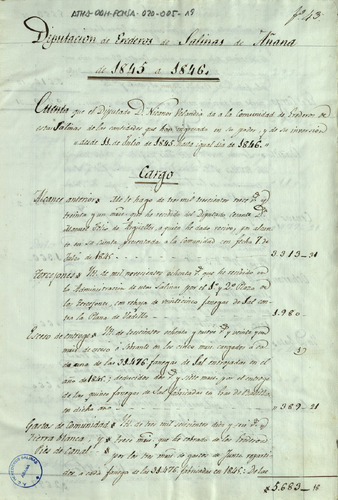 ATHA-DGH-FCHSA-020-005-19
Fº 43.
Diputacion de Erederos de Salinas de Añana
de 1845 a 1846.
Cuenta que el Diputado D. Nicomes da a la Comunidad de Erederos de
estas Salinas de las cantidades que han ingresado en su poder, y de su inversion
desde 11 de Julio de 1845 hasta igual dia de 1846.
Cargo
Alcance anterior Me lo hago de tres mil trescientos trece rs
y treinta y un mrs que he recibido del Diputado cesante D.
Manuel de Arguelles a quien he dado recivo, por alcance
en su cuenta presentada a la Comunidad con fecha 7 de
Julio de 1845. 3.313 - 31
Torrejones Yt. de mil novecientos ochenta rs que he recibido de
la Administracion de estas Salinas por el 1º y 2º Plazo de
los torrejones, con rebaja de veinticinco fanegas de Sal con
tra la Plana de Vadillo 1.980
Exceso de entrega Yt. de trescientos ochenta y nueve rs y veinte y un
mrs de exceso
de las 31.476 fanegas de Sal entregadas en el
año de 1845; deducidos
de las quince fanegas de Sal fabricadas
en dicho año 389 - 21
Gastos de Comunidad y Tierra blanca Yt. de tres mil
y trece mrs, que he cobrado de los
por los tres mrs de gastos en Junta
a cada fanega de las 31.476 fabricadas en 1845. De las
5.683 - 18